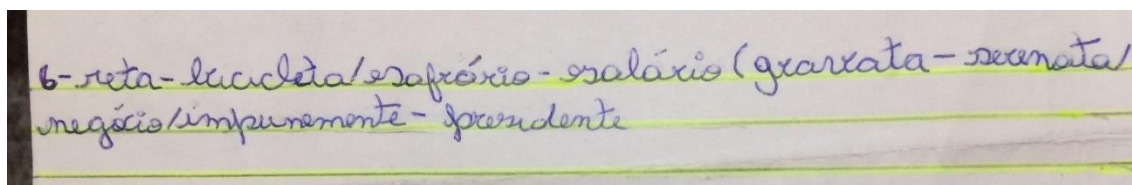 6- reta - bicicleta / safrório - salário (gravata - serenata /
negócio / impunemente - presidente